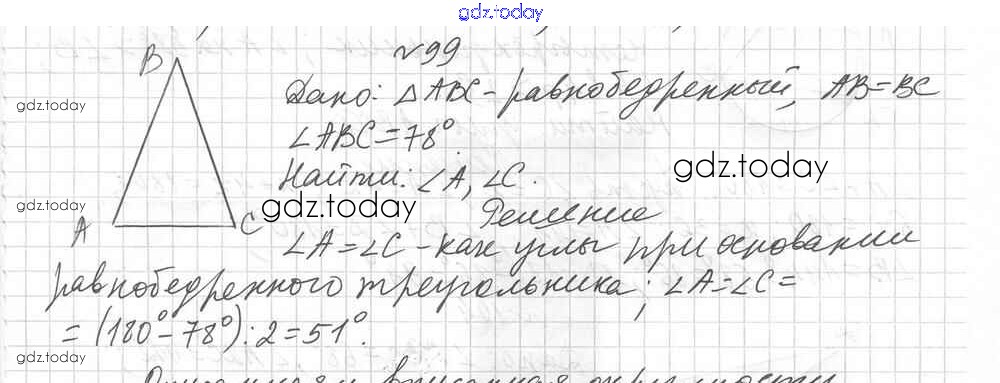 gdz.today
№99
B
Дано: △ABC - равнобедренный, AB=BC
gdz.today
∠ABC=78°.
Найти: ∠A, ∠C.
gdz.today
gdz.today
gdz.today
Решение
A
C
∠A=∠C - как углы при основании
равнобедренного треугольника; ∠A=∠C=
=(180°-78°):2=51°.
gdz.today